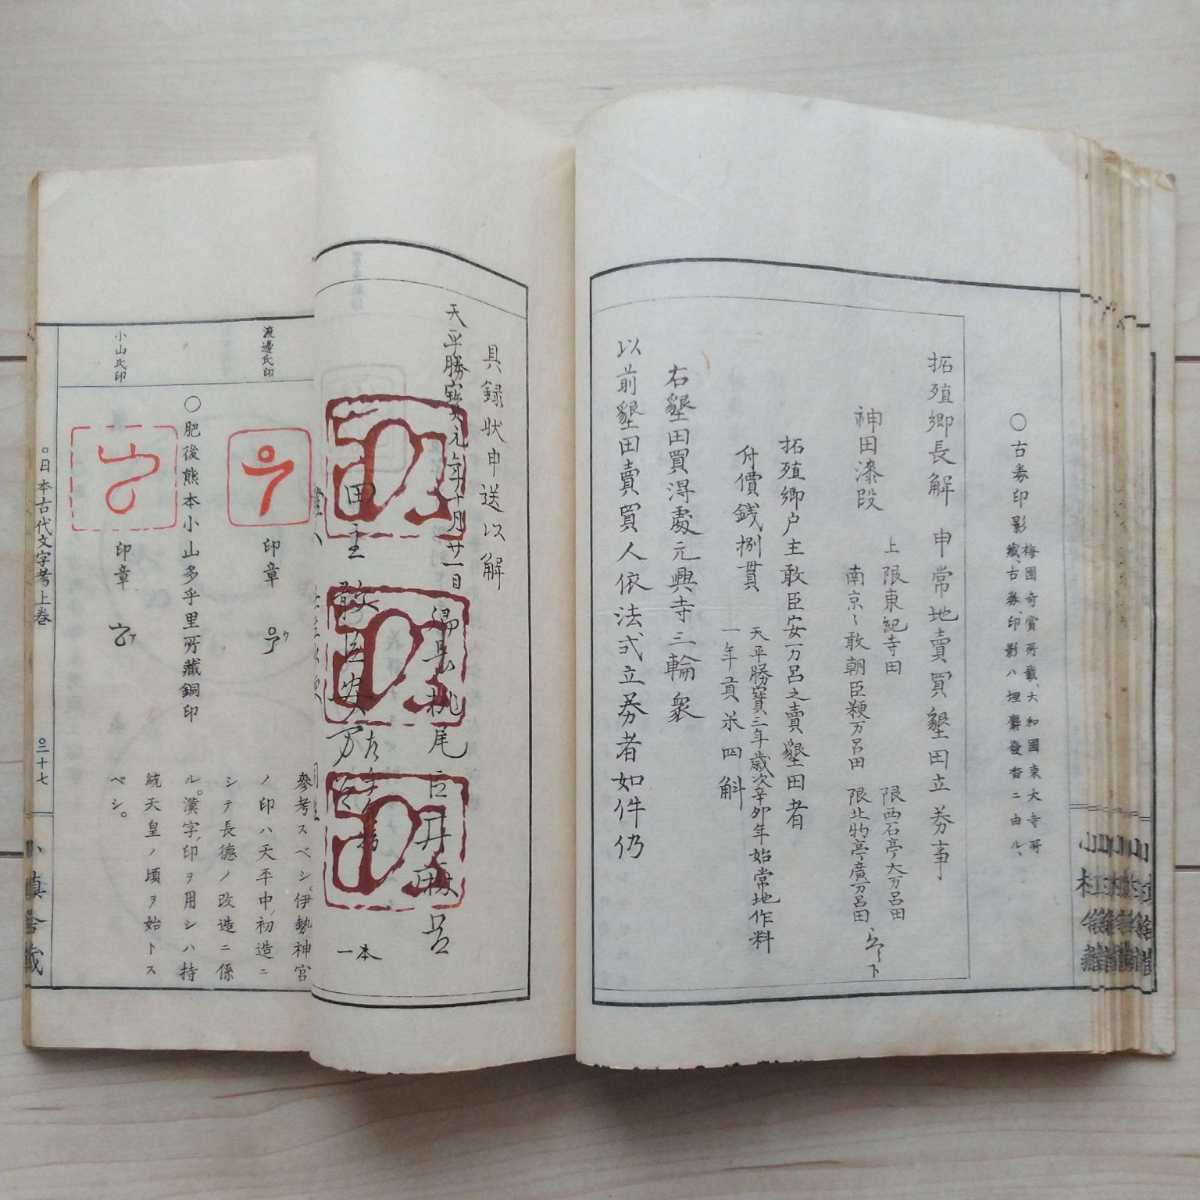 〇古券印影
梅園奇賞所載、大和國東大寺所
藏、古券、印影ハ埋麝發香ニ由ル、
拓殖郷長解 申常地賣買墾田立券事
神田漆段
上限東紀寺田
南京〻敢朝臣粳万呂田
限西石亭大万呂田
限北物亭廣万呂田
拓殖郷戸主敢臣安万呂之賣墾田者
充價銭捌貫
天平勝寶三年歳次辛卯年始常地作料
一年貢米四斛
右墾田買淂處元興寺三輪衆
以前墾田賣買人依法式立券者如件仍
具録状申送以解
天平勝寳
元年十月廿一日
田主
敢臣安万
桃尾臣井麻呂
一本
渡邊氏印
印章
ウ
〇肥後熊本小山多乎里所藏銅印
小山氏印
印章
ア
參考スベシ。伊勢神宮
ノ印ハ天平中初造ニ
シテ長德ノ改造ニ係
ル。漢字印ヲ用シハ持
統天皇ノ頃ヲ始トス
ベシ。
日本古代文字考上巻
三十七